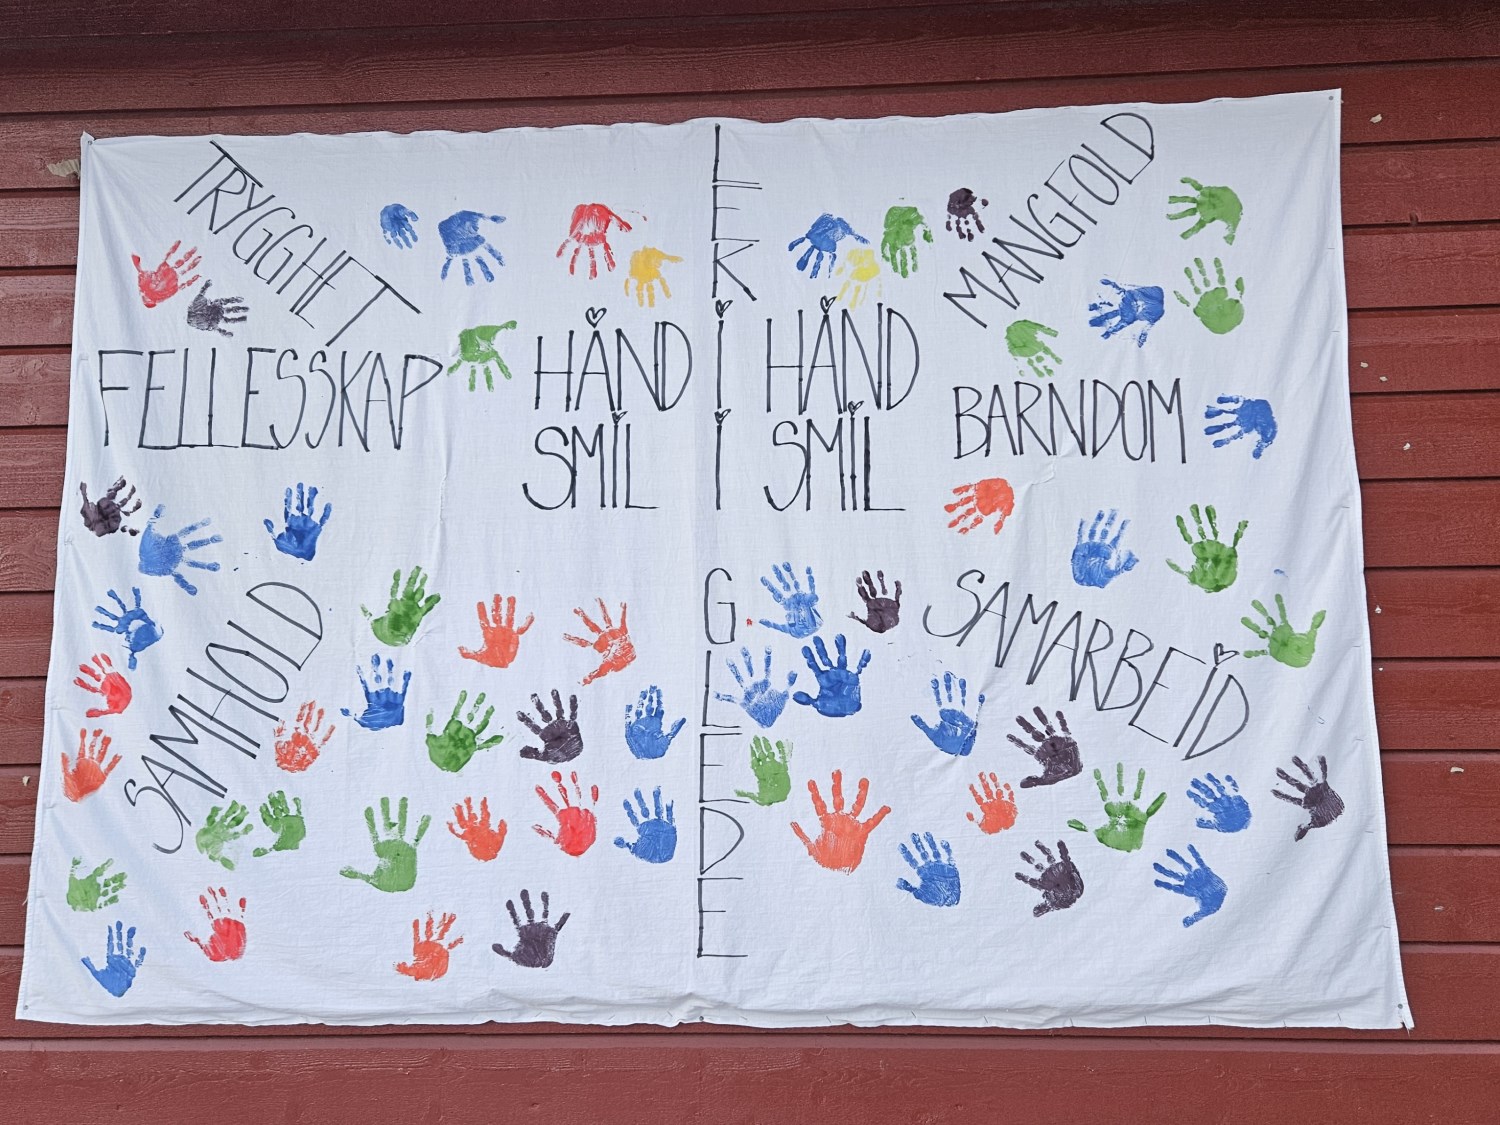 TRYGGHET
LEK
MANGFOLD
FELLESSKAP
HÅND I HÅND
SMIL I SMIL
BARNDOM
SAMHOLD
GLEDE
SAMARBEID